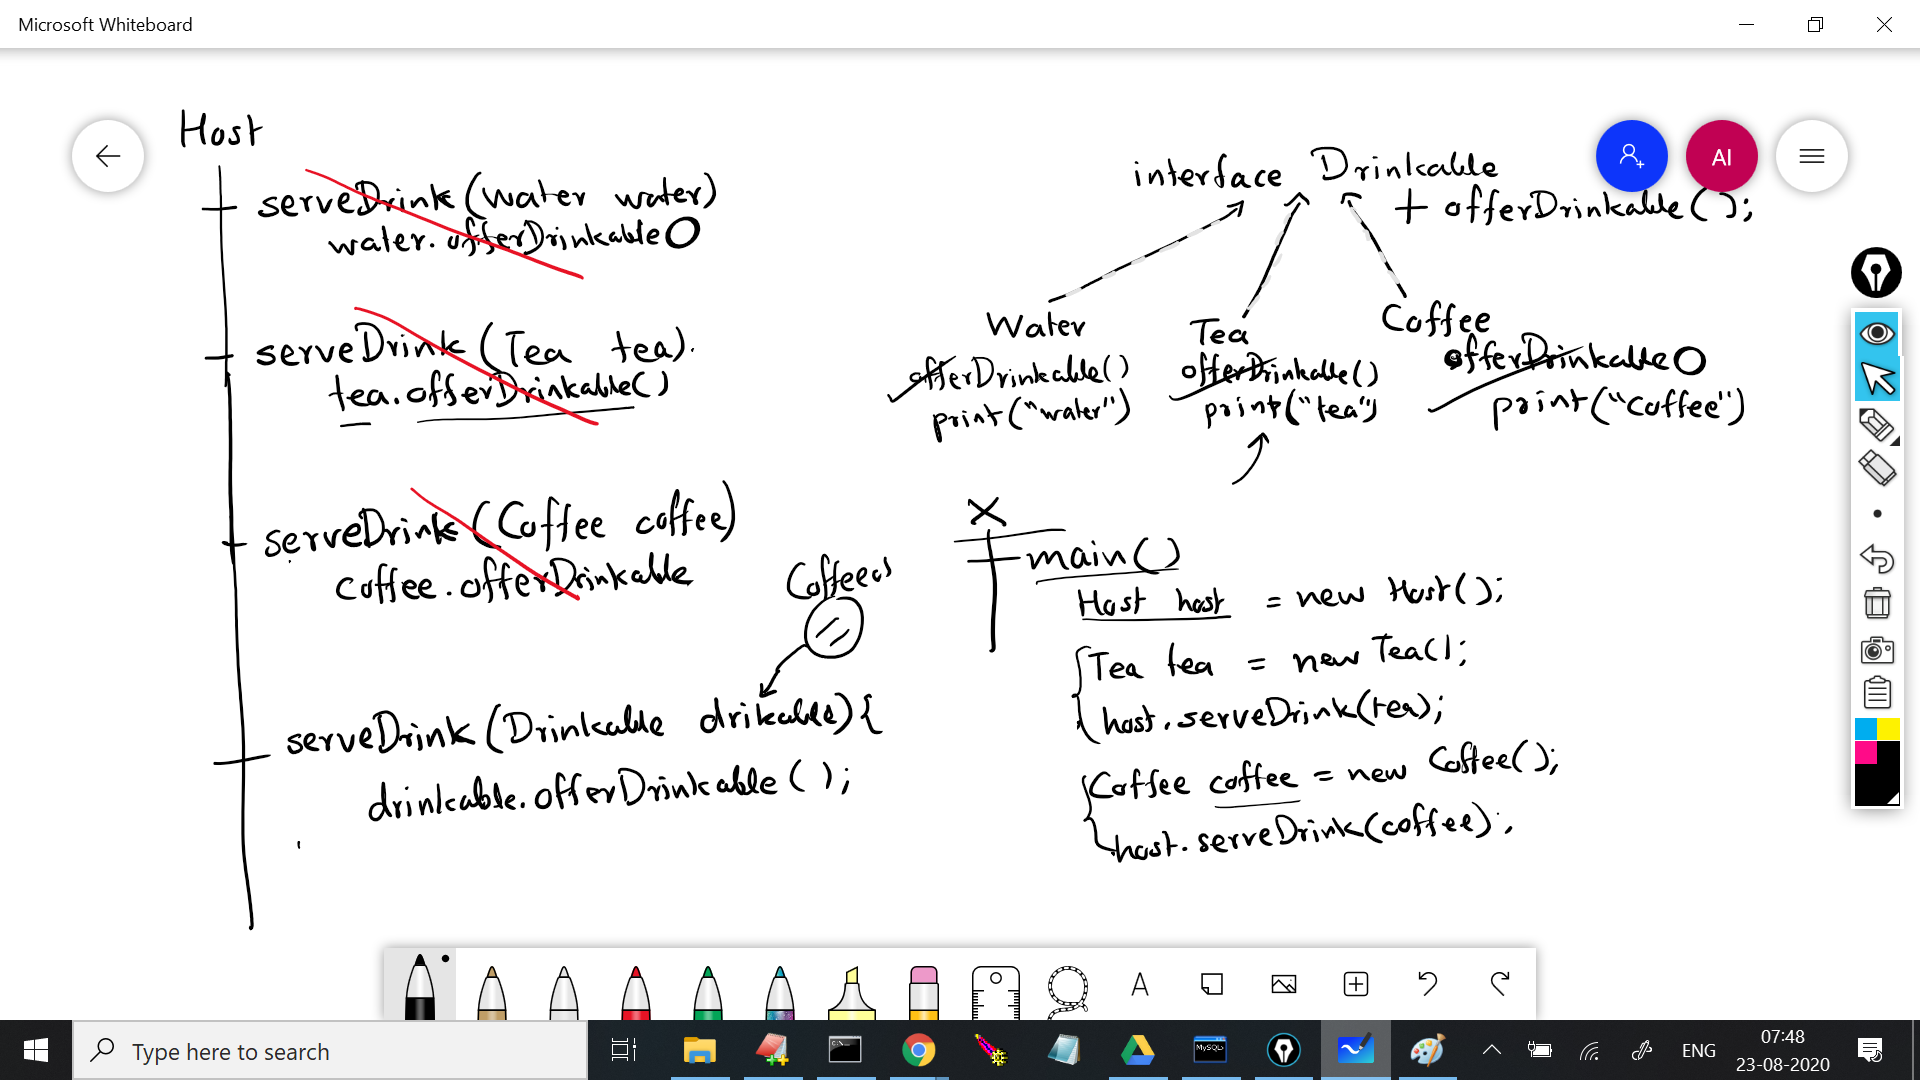 Microsoft Whiteboard
Host
serveDrink (Water water)
water.offerDrinkable()
serveDrink (Tea tea).
tea.offerDrinkable()
serveDrink (Coffee coffee)
coffee.offerDrinkable
serveDrink (Drinkable drikable){
drinkable.offerDrinkable ( );
interface Drinkable
+ offerDrinkable();
AI
Water
offerDrinkable()
print("water")
Tea
offerDrinkable()
print("tea")
Coffee
offerDrinkable()
print("Coffee")
X
main()
Host host = new Host();
Tea tea = new Tea();
host.serveDrink(tea);
Coffee coffee = new Coffee();
host.serveDrink(coffee);
A
Type here to search
MySQL
ENG
07:48
23-08-2020